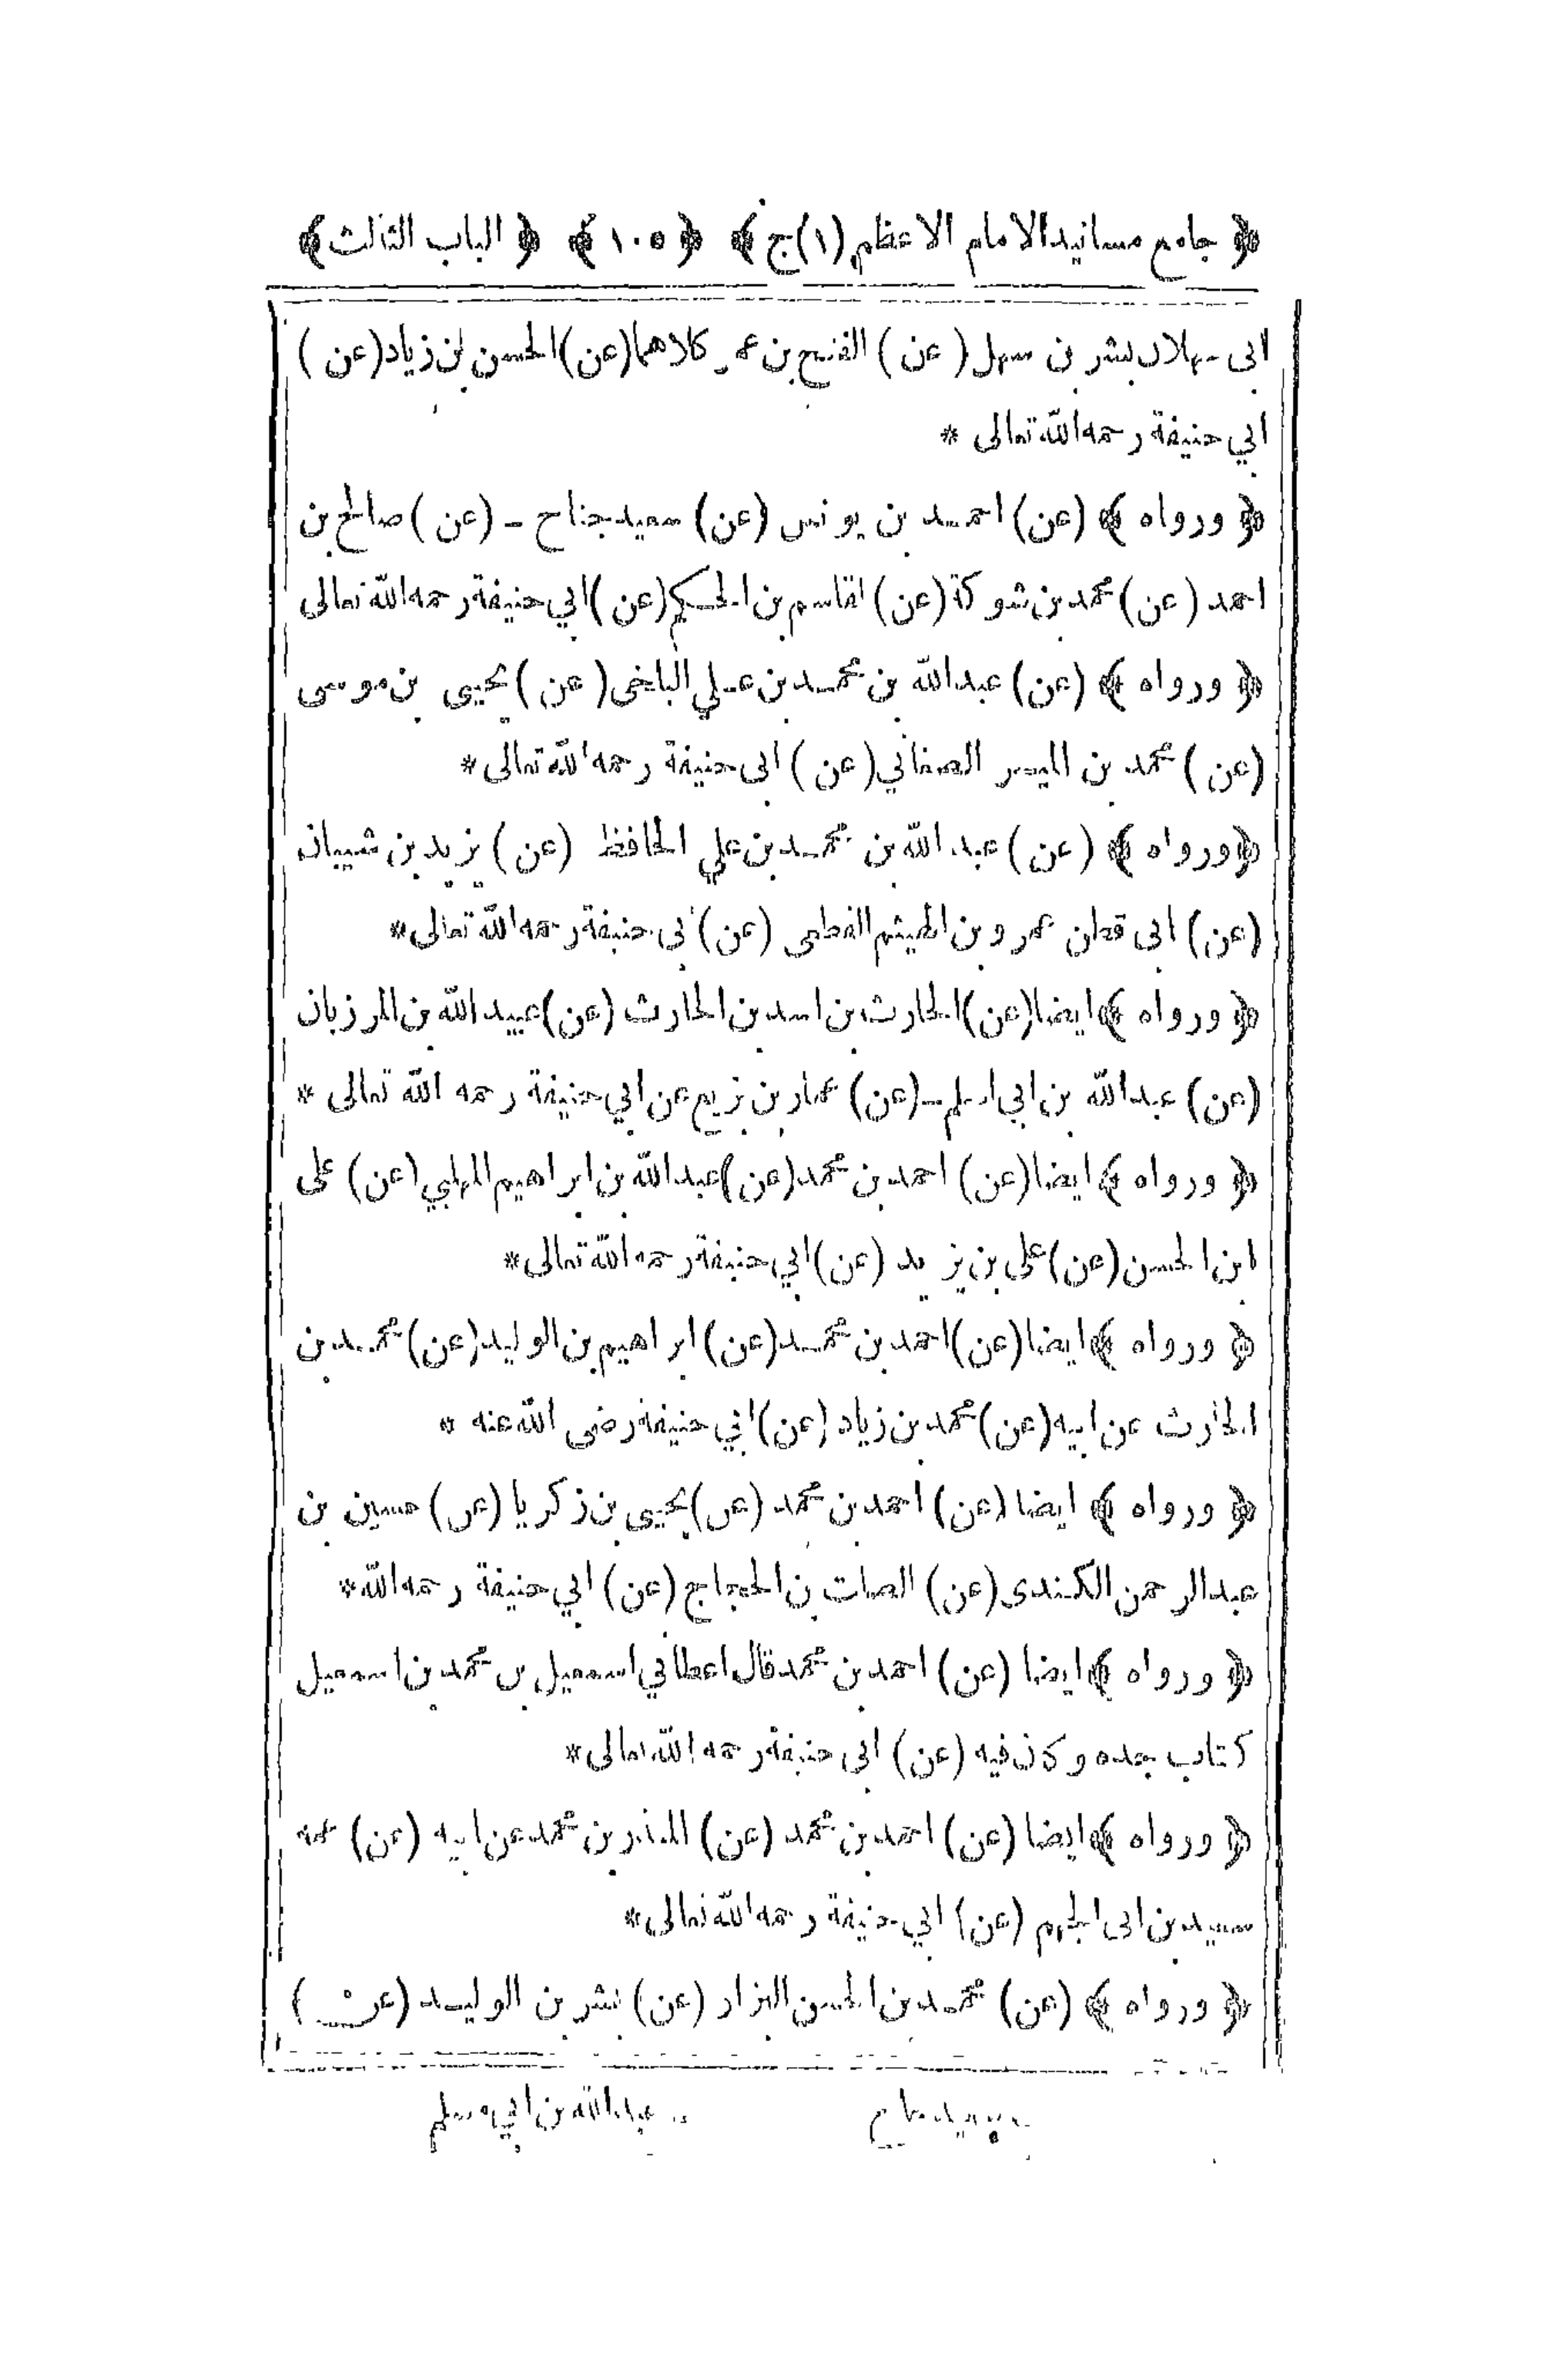 ﴿ جامع مسانيد الامام الاعظم (١) ج ﴾ ﴿ ١٠٥ ﴾ ﴿ الباب الثالث ﴾
ابى بشر بن سهل (عن) الفتح بن كلاهما (عن) الحسن بن زياد (عن)
ابي حنيفة رحمه الله تعالى *
﴿ ورواه ﴾ (عن) احمد بن يونس (عن) سعيد جناح - (عن) صالح بن
احمد (عن) محمد بن شوكة (عن) القاسم بن الحكم (عن) ابي حنيفة رحمه الله تعالى
﴿ ورواه ﴾ (عن) عبدالله بن محمد بن علي البلخى (عن) يحيى بن موسى
(عن) محمد بن الميسر الصغاني (عن) ابى حنيفة رحمه الله تعالى *
﴿ ورواه ﴾ (عن) عبد الله بن محمد بن علي الحافظ (عن) يزيد بن شيبان
(عن) ابى قطن عمرو بن الهيثم القطعى (عن) ابى حنيفة رحمه الله تعالى *
﴿ ورواه ﴾ ايضا (عن) الحارث بن اسد بن الحارث (عن) عبيد الله بن المرزبان
(عن) عبدالله بن ابي اسلم - (عن) عمار بن بزيع عن ابي حنيفة رحمه الله تعالى *
﴿ ورواه ﴾ ايضا (عن) احمد بن محمد (عن) عبدالله بن ابراهيم المهلبي (عن) على
ابن الحسن (عن) على بن يزيد (عن) ابي حنيفة رحمه الله تعالى *
﴿ ورواه ﴾ ايضا (عن) احمد بن محمد (عن) ابراهيم بن الوليد (عن) محمد بن
الحارث عن ابيه (عن) محمد بن زياد (عن) ابي حنيفة رضى الله عنه *
﴿ ورواه ﴾ ايضا (عن) احمد بن محمد (عن) يحيى بن زكريا (عن) حسين بن
عبدالرحمن الكندى (عن) الصلت بن الحجاج (عن) ابي حنيفة رحمه الله *
﴿ ورواه ﴾ ايضا (عن) احمد بن محمد قال اعطاني اسمعيل بن محمد بن اسمعيل
كتاب جده وكان فيه (عن) ابى حنيفة رحمه الله تعالى *
﴿ ورواه ﴾ ايضا (عن) احمد بن محمد (عن) المنذر بن محمد عن ابيه (عن) عمه
سعيد بن ابى الجهم (عن) ابي حنيفة رحمه الله تعالى *
﴿ ورواه ﴾ (عن) محمد بن الحسن البزار (عن) بشر بن الوليد (عن)
عبدالله بن ابي مسلم